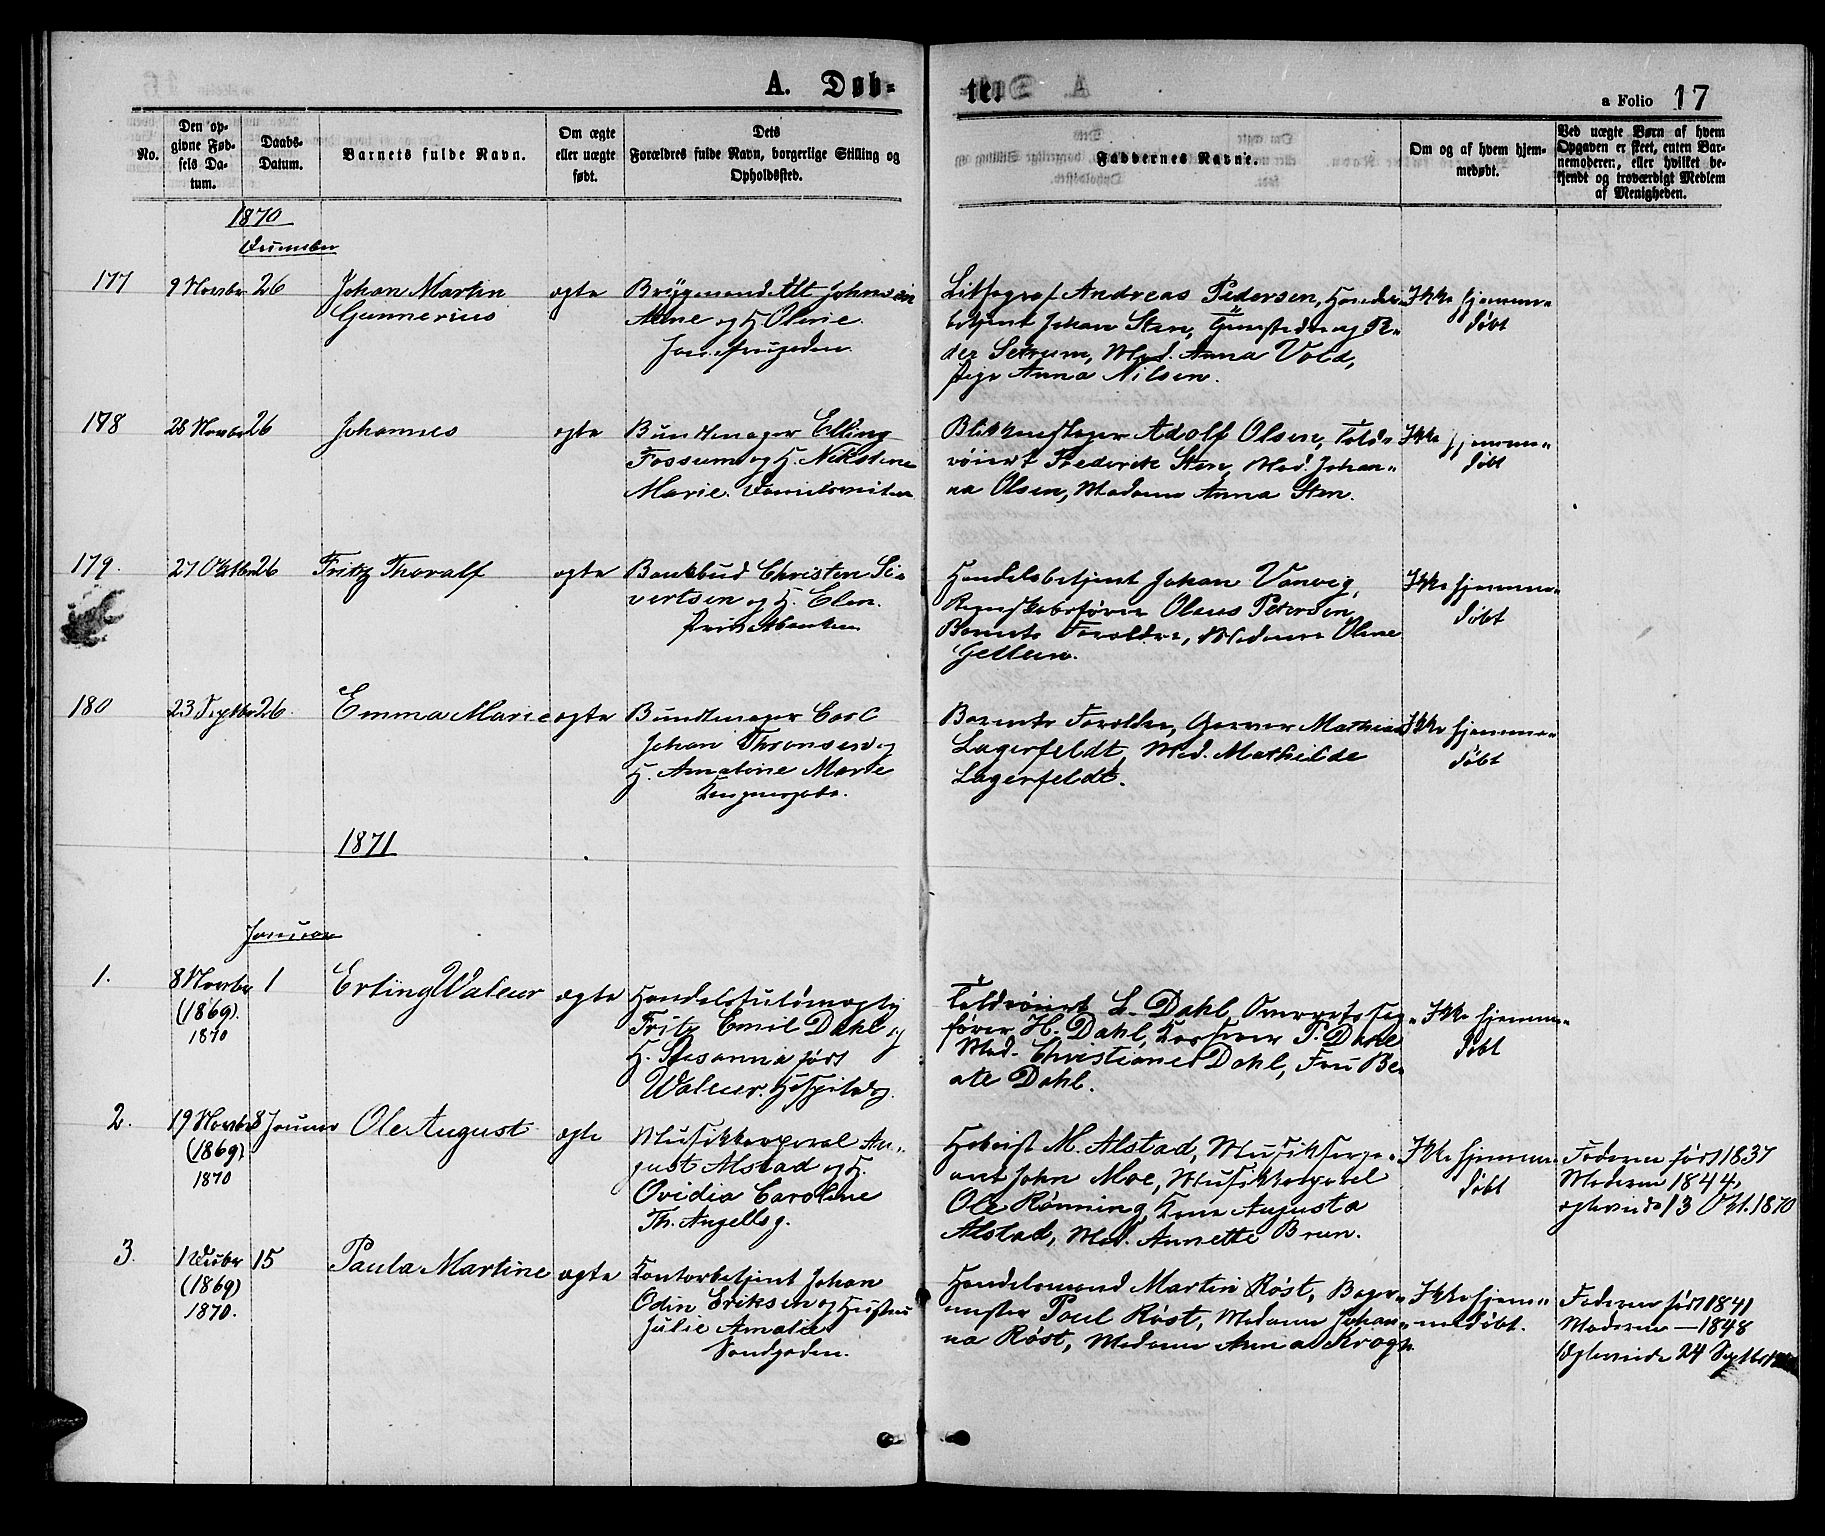 A. Døb-
te.
a Folio 17
No.
Den op-
givne Fød-
sels Da-
tum.
Daabs-
Datum.
Barnets fulde Navn.
Om ægte
eller uægte
født.
Dets
Forældres fulde Navn, borgerlige Stilling og
Opholdssted.
Faddernes Navne.
Om og af hvem hjem-
medøbt.
Ved uægte Børn af hvem
Opgaven er skeet, enten Bar-
nemoderen, eller hvilket be-
kjendt og troværdigt Medlem
af Menigheden.
1870
177
9 Novbr
26
Johan Martin
Gunnerius
ægte
Brygmand
Arne og H. Oline.
Lithograf Andreas Pedersen, Handels-
betjent Johan Sten,
der Setrum, Mad. Anna Vold,
Pige Anna Nilsen.
Ikke hjemme-
døbt
178
28 Novbr
26
Johannes
ægte
Bundtmager Elling
Fossum og H.
Marie.
Blikkenslager Adolf Olsen, Told-
røiert Frederik Sten, Mad. Johan-
na Olsen, Madame Anna Sten.
Ikke hjemme-
døbt
179.
27 Oktbr
26
Fritz Thoralf
ægte
Bankbud Christen Si-
vertsen og H. Elen.
Handelsbetjent Johan Vanvig,
Regnskabsfører Olaus Petersen,
Barnets Forældre, Madame Oline
Ikke hjemme-
døbt
180
23 Septbr
26.
Emma Marie
ægte
Bundtmager Carl
Johan Thronsen og
H. Amaline Marie
Barnets Forældre, Garver Mathias
Lagerfeldt, Mad. Mathilde
Lagerfeldt.
Ikke hjemme-
døbt
1871
Januar
1.
8 Novbr
(1869).
1870
1
Erling Waleur
ægte
Handelsfuldmægtig
Fritz Emil Dahl og
H. Susanna født
Waleur. Hospitalsg.
Toldrøiert L. Dahl, Overretssag-
fører H. Dahl, P. Dahl
Mad. Christiane Dahl, Fru Be-
ate Dahl.
Ikke hjemme-
døbt
2.
19 Novbr
(1869)
1870
8 Januar
Ole August
ægte
Musikkorporal Au-
gust Alstad og H.
Ovidia Caroline
Th. Angellsg.
Hoboist M. Alstad, Musikserge-
ant John Moe, Musikkorporal
Ole Rønning, Kone Augusta
Alstad, Mad. Annette Brun.
Ikke hjemme-
døbt
Faderen født 1837
Moderen 1844,
ægteviede 13 Okt. 1870
3.
1 Decbr
(1869)
1870.
15
Paula Martine
ægte
Kontorbetjent Johan
Odin Eriksen og Hustru
Julie Amalie
Sandgaden.
Handelsmand Martin Røst, Bager-
mester Poul Røst, Madame Johan-
na Røst, Madame Anna Krogh
Ikke hjem-
medøbt.
Faderen født 1841
Moderen — 1848
Ægteviede 24 Septbr